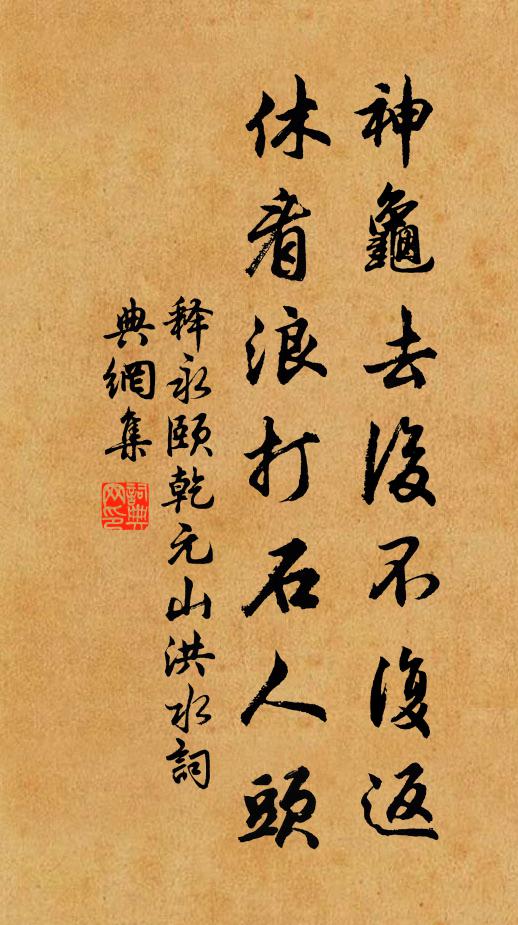 神龜去後不復返
休看浪打石人頭
释永頤乾元山洪水詞
典網集
詞典網印